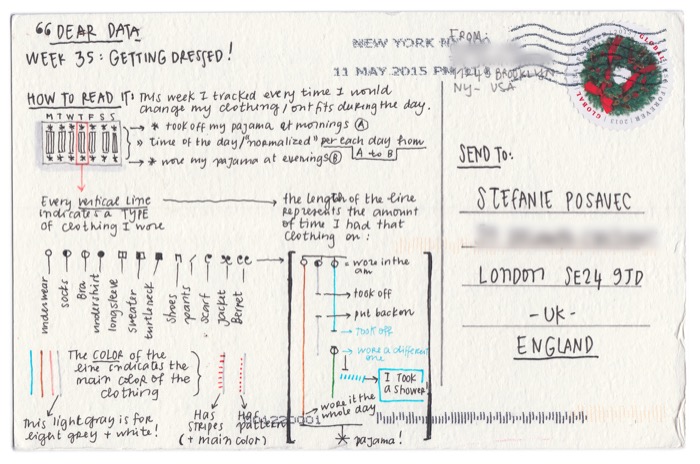 DEAR DATA
WEEK 35: GETTING DRESSED!
HOW TO READ IT: This week I tracked every time I would
change my clothing/outfits during the day.
M T W T F S S
* took off my pajama at mornings A
» time of the day/"normalized" per each day from
A to B
* wore my pajama at evenings B
Every vertical line
indicates a TYPE
of clothing I wore
the length of the line
represents the amount
of time I had that
clothing on:
underwear
socks
Bra
undershirt
longsleeve
sweater
turtleneck
shoes
pants
scarf
jacket
Berret
= wore in the
am
took off
put back on
took off
wore a different
one
I TOOK
A SHOWER
wore it the
whole day
* pajama!
The COLOR of the
line indicates the
main color of the
clothing
This light gray is for
light grey + white!
Has
STRIPES
(+ main color)
Has
pattern
1220001
NEW YORK NY
11 MAY 2015 PM
FROM:
BROOKLYN
NY- USA
GLOBAL
FOREVER
GLOBAL
SEND TO:
STEFANIE POSAVEC
LONDON SE24 9JD
-UK-
ENGLAND